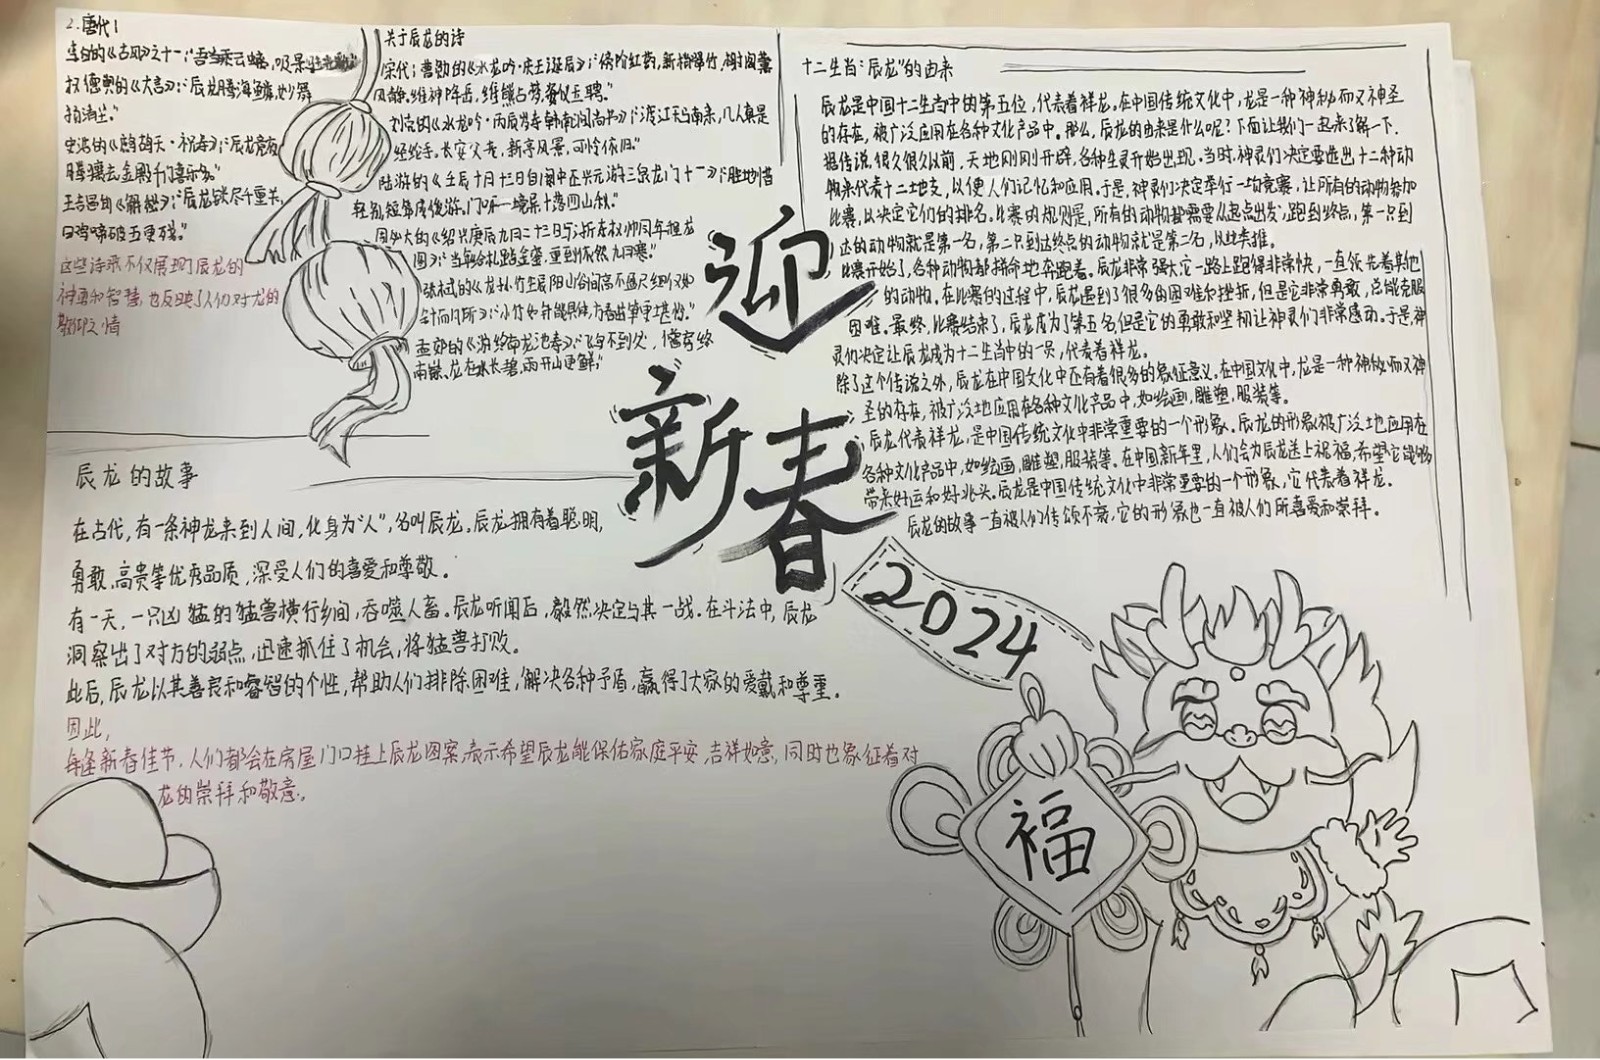 2.唐代1
李白的《古风》之十一:"吾当乘云螭,吸景
权德舆的《大言》:"辰龙腾海鳞,妙舞
史浩的《鹧鸪天·祝寿》:"辰龙竞
日鸡啼破五更残。"
这些诗录不仅展现了辰龙的
神勇和智慧,也反映了人们对龙的
敬仰之情
关于辰龙的诗
宋代:曹勋的《水龙吟·庆王诞辰》:"
刘克的《水龙吟·丙辰寿韩南涧尚书》:"渡江天马南来,几人真是
经纶手。长安父老,新亭风景,可怜依旧。"
陆游的《壬辰十月十三日自阆中还兴元游三泉龙门十一》:"胜地惜
轻别,短筇成俊游。门呀一境杲,十落四山秋。"
孟郊的《游终南龙池寺》:"飞鸟不到处,僧房终
南巅。龙在水长碧,雨开山更鲜。"
迎
新
春
2024
十二生肖"辰龙"的由来
辰龙是中国十二生肖中的第五位,代表着祥龙。在中国传统文化中,龙是一种神秘而又神圣
的存在,被广泛应用在各种文化产品中。那么,辰龙的由来是什么呢?下面让我们一起来了解一下.
据传说,很久很久以前,天地刚刚开辟,各种生灵开始出现。当时,神灵们决定要选出十二种动
物来代表十二地支,以便人们记忆和应用。于是,神灵们决定举行一场竞赛,让所有的动物参加
比赛,以决定它们的排名。比赛的规则是,所有的动物都需要从起点出发,跑到终点,第一只到
达的动物就是第一名,第二只到达终点的动物就是第二名,以此类推。
比赛开始了,各种动物都拼命地奔跑着。辰龙非常强大,它一路上跑得非常快,一直领先着其他
的动物。在比赛的过程中,辰龙遇到了很多的困难和挫折,但是它非常勇敢,总能克服
困难。最终,比赛结束了,辰龙成为了第五名,但是它的勇敢和坚韧让神灵们非常感动。于是,神
灵们决定让辰龙成为十二生肖中的一员,代表着祥龙。
除了这个传说之外,辰龙在中国文化中还有着很多的象征意义。在中国文化中,龙是一种神秘而又神
圣的存在,被广泛地应用在各种文化产品中,如绘画,雕塑,服装等。
辰龙代表祥龙,是中国传统文化中非常重要的一个形象。辰龙的形象被广泛地应用在
各种文化产品中,如绘画,雕塑,服装等。在中国新年里,人们会为辰龙送上祝福,希望它能够
带来好运和好兆头。辰龙是中国传统文化中非常重要的一个形象,它代表着祥龙。
辰龙的故事一直被人们传颂不衰,它的形象也一直被人们所喜爱和崇拜.
辰龙的故事
在古代,有一条神龙来到人间,化身为"人",名叫辰龙。辰龙拥有着聪明,
勇敢、高贵等优秀品质,深受人们的喜爱和尊敬。
有一天,一只凶猛的猛兽横行乡间,吞噬人畜。辰龙听闻后,毅然决定与其一战。在斗法中,辰龙
洞察出了对方的弱点,迅速抓住了机会,将猛兽打败。
此后,辰龙以其善良和睿智的个性,帮助人们排除困难,解决各种矛盾,赢得了大家的爱戴和尊重。
因此,
每逢新春佳节,人们都会在房屋门口挂上辰龙图案,表示希望辰龙能保佑家庭平安,吉祥如意,同时也象征着对
龙的崇拜和敬意。
福